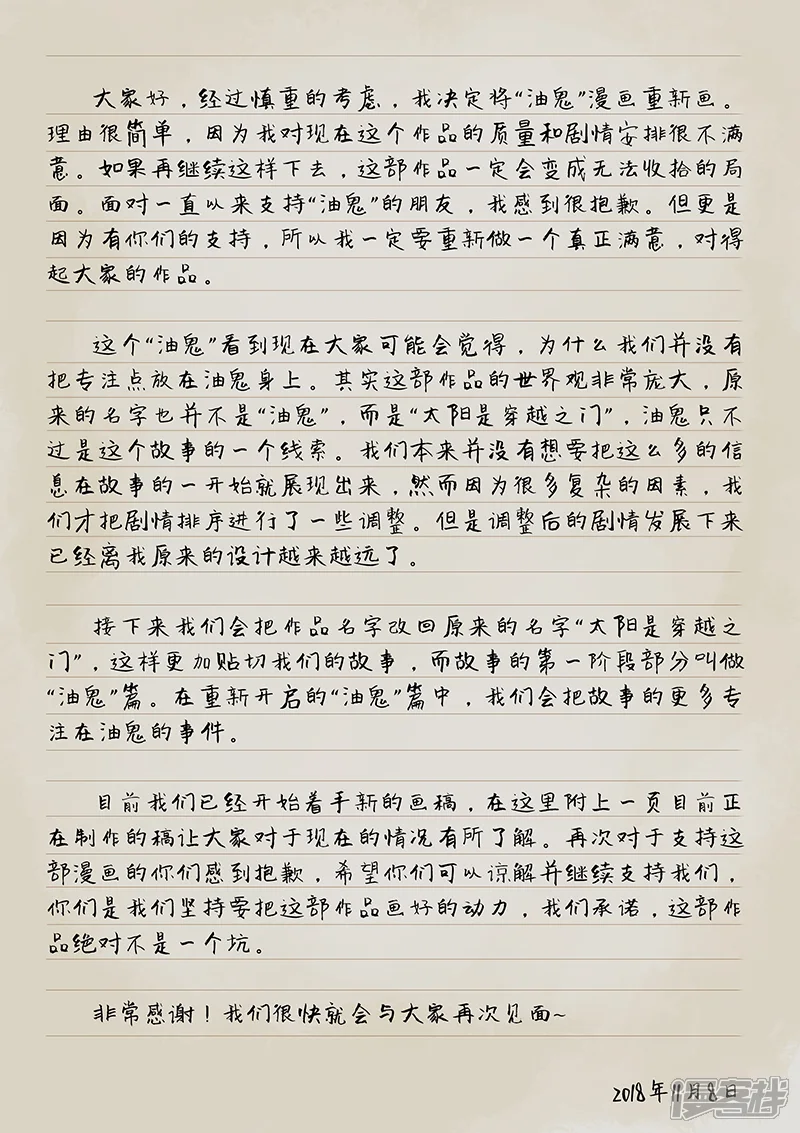 大家好，经过慎重的考虑，我决定将“油鬼”漫画重新画。
理由很简单，因为我对现在这个作品的质量和剧情安排很不满
意。如果再继续这样下去，这部作品一定会变成无法收拾的局
面。面对一直以来支持“油鬼”的朋友，我感到很抱歉。但更是
因为有你们的支持，所以我一定要重新做一个真正满意，对得
起大家的作品。
这个“油鬼”看到现在大家可能会觉得，为什么我们并没有
把专注点放在油鬼身上。其实这部作品的世界观非常庞大，原
来的名字也并不是“油鬼”，而是“太阳是穿越之门”，油鬼只不
过是这个故事的一个线索。我们本来并没有想要把这么多的信
息在故事的一开始就展现出来，然而因为很多复杂的因素，我
们才把剧情排序进行了一些调整。但是调整后的剧情发展下来
已经离我原来的设计越来越远了。
接下来我们会把作品名字改回原来的名字“太阳是穿越之
门”，这样更加贴切我们的故事，而故事的第一阶段部分叫做
“油鬼”篇。在重新开启的“油鬼”篇中，我们会把故事的更多专
注在油鬼的事件。
目前我们已经开始着手新的画稿，在这里附上一页目前正
在制作的稿让大家对于现在的情况有所了解。再次对于支持这
部漫画的你们感到抱歉，希望你们可以谅解并继续支持我们，
你们是我们坚持要把这部作品画好的动力，我们承诺，这部作
品绝对不是一个坑。
非常感谢！我们很快就会与大家再次见面~
2018年11月8日
漫客栈